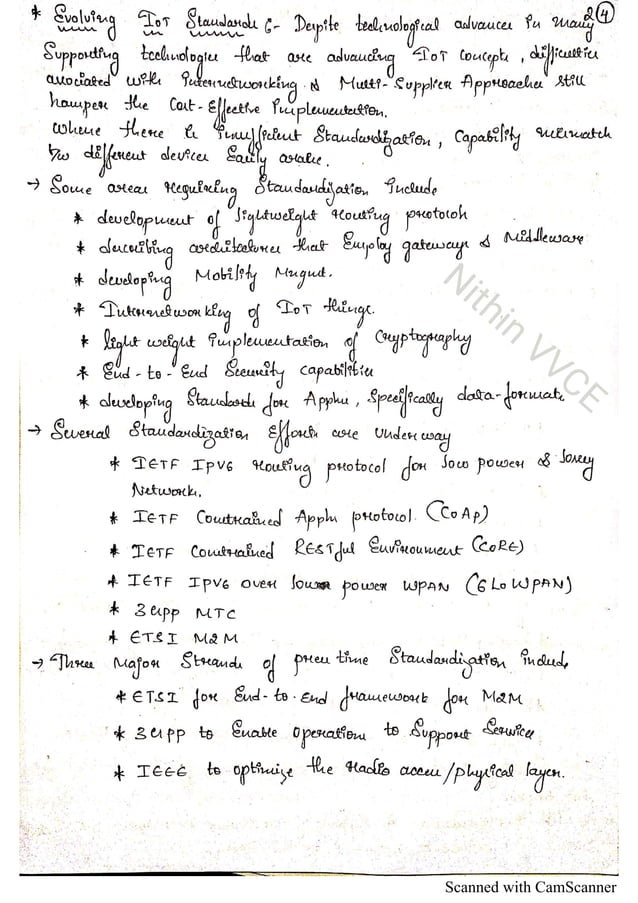 * Evolving IoT Standards :- Despite technological advances in many
2 4
Supporting technologies that are advancing IoT concepts, difficulties
associated with Internetworking & Multi-Supplier Approaches still
hamper the Cost-Effective Implementation.
Where there is insufficient Standardization, Capability mismatch
b/w different devices Easily arise.
→ Some areas requiring Standardization include
* development of lightweight routing protocols
* describing architectures that Employ gateways & Middleware
* developing Mobility Mngmt.
* Internetworking of IoT things.
* light weight implementation of Cryptography
* End-to-End Security capabilities
* developing Standards for Appln, Specifically data-formats
→ Several Standardization Efforts are Underway
* IETF IPV6 routing protocol for low power & lossy
Networks.
* IETF Constrained Appln protocol. (CoAp)
* IETF Constrained RESTful Environment (CORE)
* IETF IPV6 over low power WPAN (6LoWPAN)
* 3GPP MTC
* ETSI M2M
→ Three Major Strands of present time Standardization include
* ETSI for End-to-End framework for M2M
* 3GPP to Enable operations to Support Services
* IEEE to optimize the radio access/physical layer.
Nithin VVCE
Scanned with CamScanner